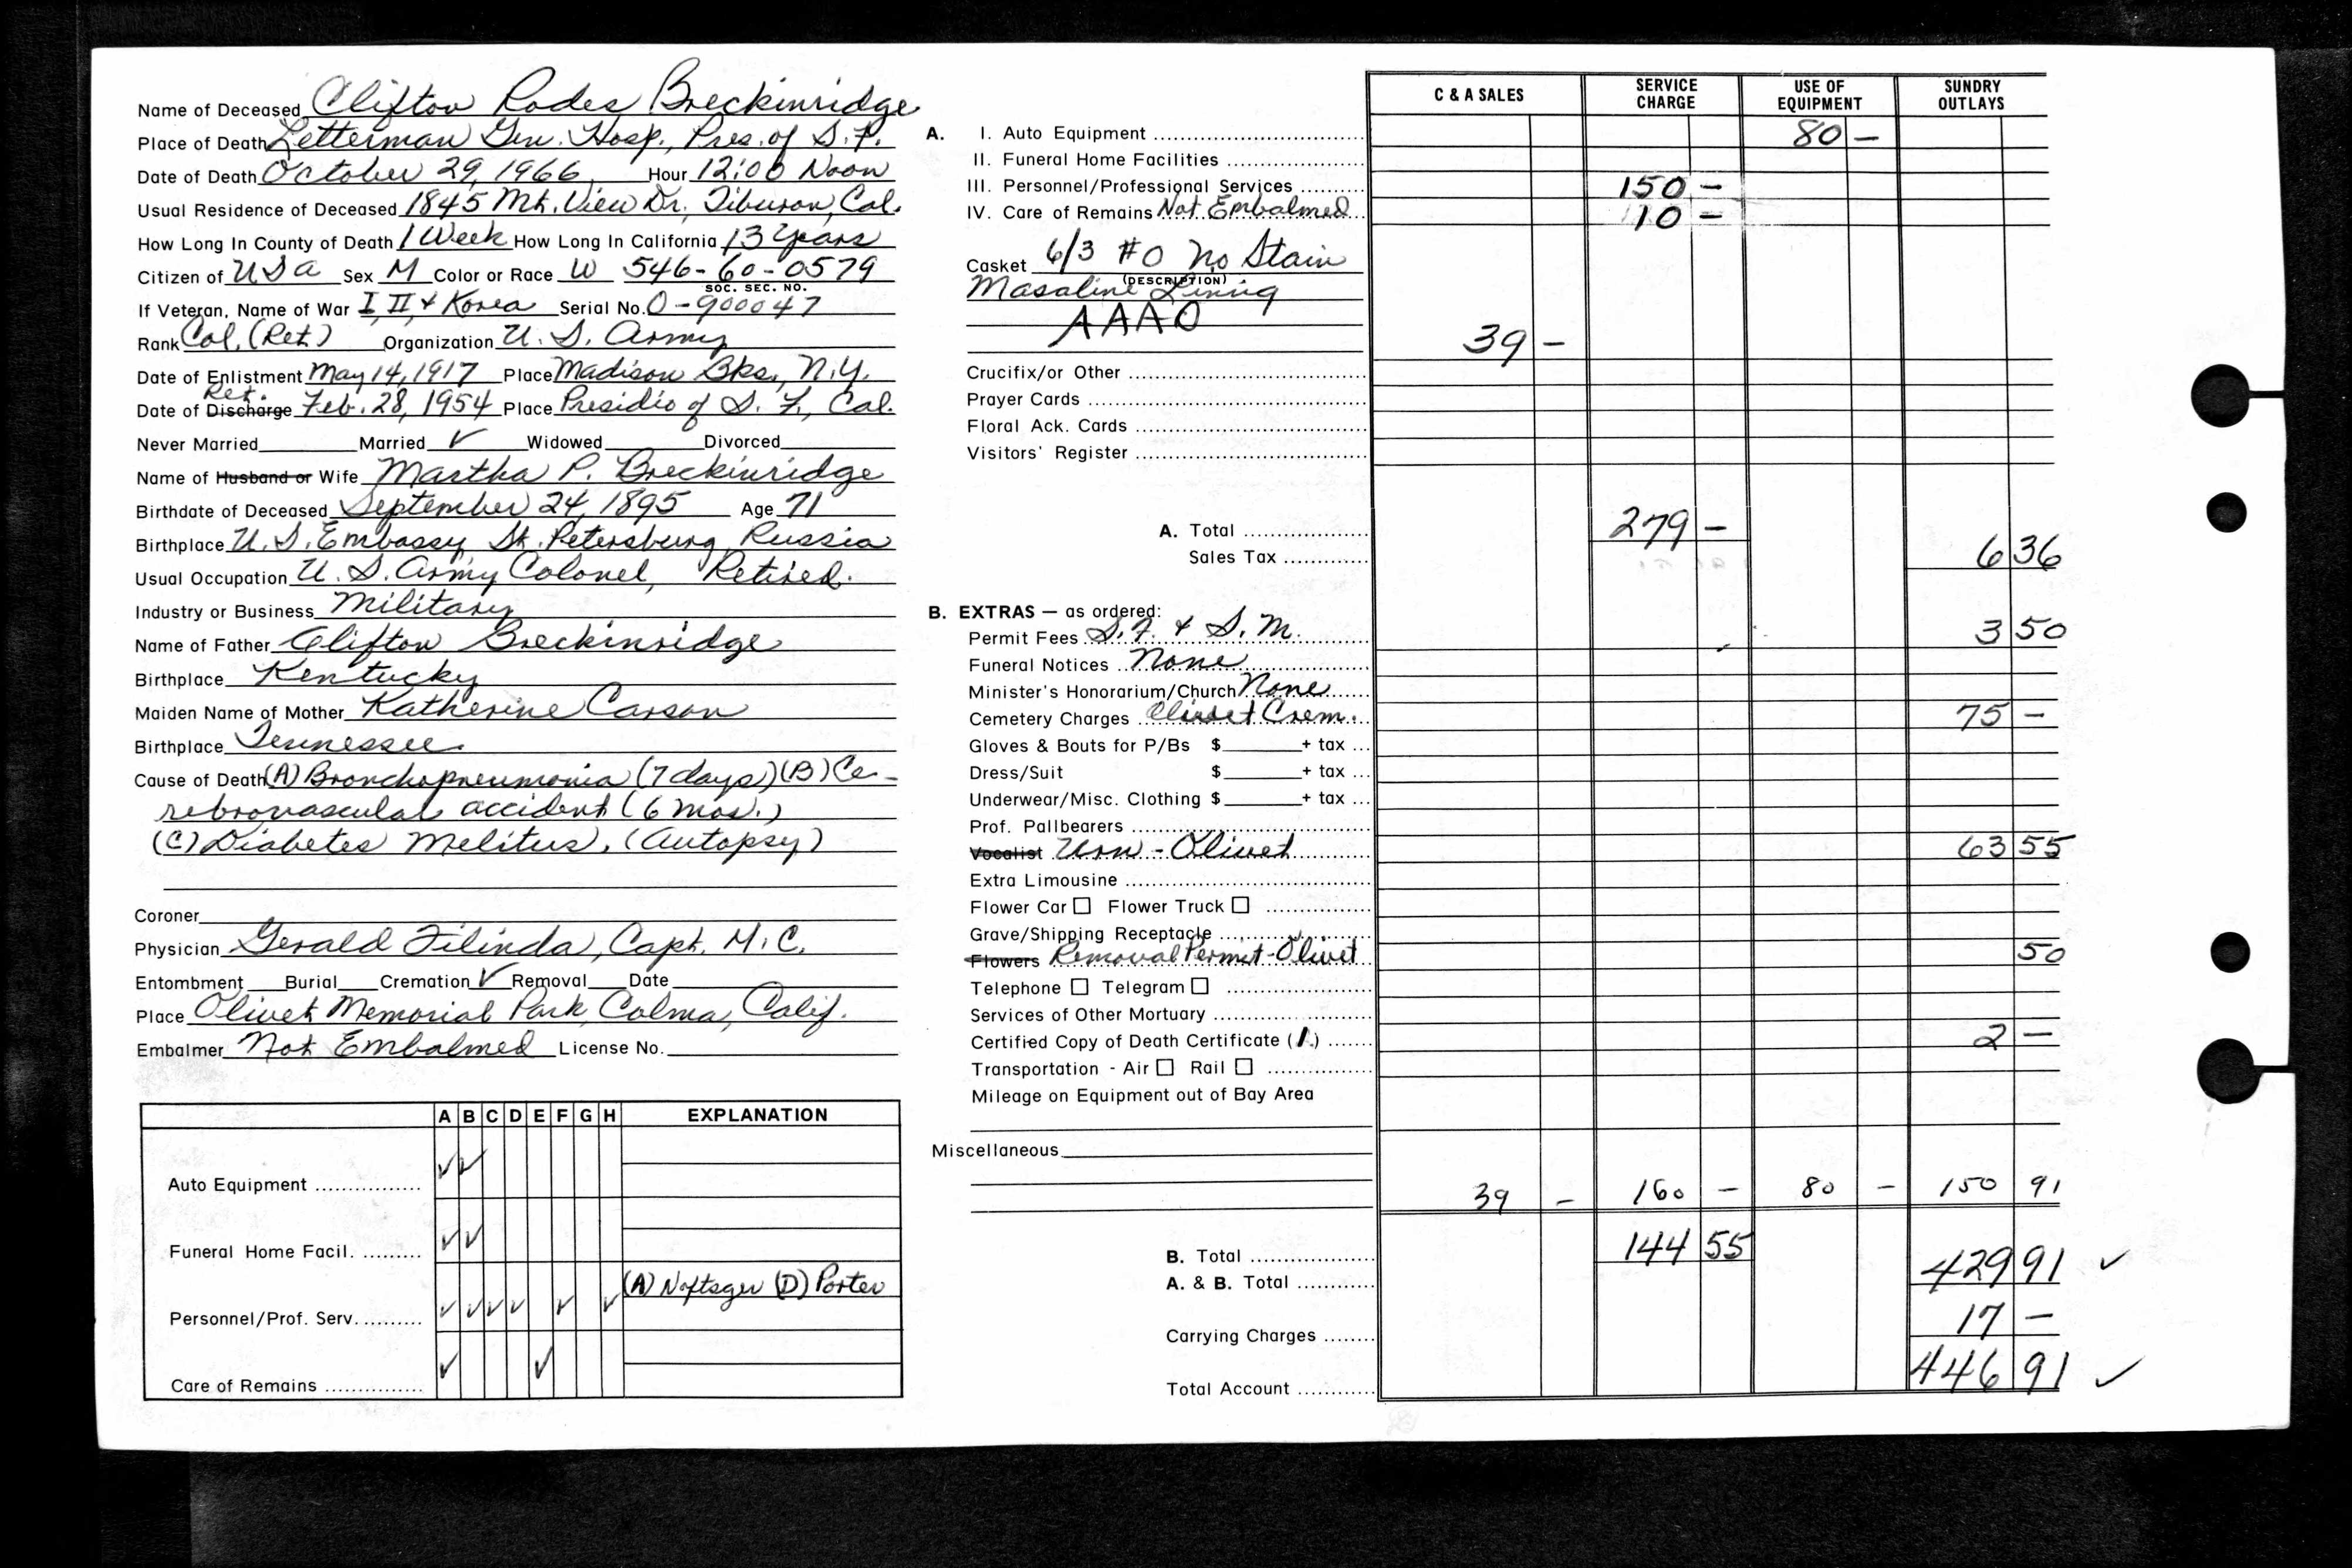 Name of Deceased Clifton Rodes Breckinridge
Place of Death Letterman Gen. Hosp., Pres. of S. F.
Date of Death October 29, 1966 Hour 12:00 Noon
Usual Residence of Deceased 1845 Mt. View Dr., Tiburon, Cal.
How Long In County of Death 1 Week How Long In California 13 Years
Citizen of USA Sex M Color or Race W 546-60-0579
SOC. SEC. NO.
If Veteran, Name of War I, II, & Korea Serial No. O-900047
Rank Col. (Ret.) Organization U. S. Army
Date of Enlistment May 14, 1917 Place Madison Bks., N.Y.
Ret.
Date of Discharge Feb. 28, 1954 Place Presidio of S. F., Cal.
Never Married Married ✓ Widowed Divorced
Name of Husband or Wife Martha P. Breckinridge
Birthdate of Deceased September 24, 1895 Age 71
Birthplace U. S. Embassy St. Petersburg, Russia
Usual Occupation U. S. Army Colonel, Retired.
Industry or Business Military
Name of Father Clifton Breckinridge
Birthplace Kentucky
Maiden Name of Mother Katherine Carson
Birthplace Tennessee
Cause of Death (A) Bronchopneumonia (7 days) (B) Ce-
rebrovascular accident (6 mos.)
(C) Diabetes Melitus. (Autopsy)
Coroner
Physician Gerald Filinda, Capt. M. C.
Entombment Burial Cremation ✓ Removal Date
Place Olivet Memorial Park, Colma, Calif.
Embalmer Not Embalmed License No.
A B C D E F G H EXPLANATION
Auto Equipment ✓ ✓
Funeral Home Facil. ✓ ✓
(A) Noftsger (D) Porter
Personnel/Prof. Serv. ✓ ✓ ✓ ✓ ✓ ✓
Care of Remains ✓ ✓
C & A SALES SERVICE CHARGE USE OF EQUIPMENT SUNDRY OUTLAYS
A. I. Auto Equipment 80 –
II. Funeral Home Facilities
III. Personnel/Professional Services 150 –
IV. Care of Remains Not Embalmed 10 –
Casket 6/3 #0 No Stain
(DESCRIPTION)
Masaline Lining
AAAO 39 –
Crucifix/or Other
Prayer Cards
Floral Ack. Cards
Visitors' Register
A. Total 279 –
Sales Tax 6 36
B. EXTRAS — as ordered:
Permit Fees S.F. & S.M. 3 50
Funeral Notices None
Minister's Honorarium/Church None
Cemetery Charges Olivet Crem. 75 –
Gloves & Bouts for P/Bs $ + tax
Dress/Suit $ + tax
Underwear/Misc. Clothing $ + tax
Prof. Pallbearers
Vocalist Urn - Olivet 63 55
Extra Limousine
Flower Car Flower Truck
Grave/Shipping Receptacle
Flowers Removal Permit - Olivet 50
Telephone Telegram
Services of Other Mortuary
Certified Copy of Death Certificate (1) 2 –
Transportation - Air Rail
Mileage on Equipment out of Bay Area
Miscellaneous
39 – 160 – 80 – 150 91
B. Total 144 55
A. & B. Total 429 91 ✓
Carrying Charges 17 –
Total Account 446 91 ✓